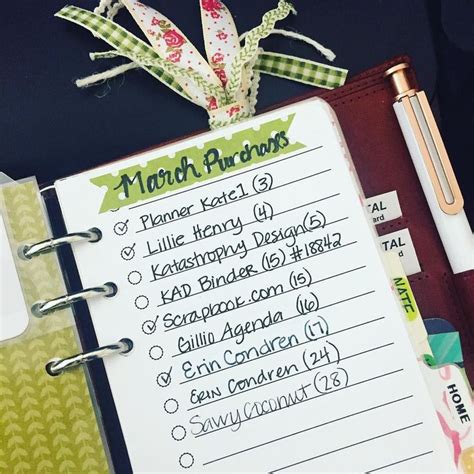 March Purchases
Planner Kate1 (3)
Lillie Henry (4)
Katastrophy Design (5)
KAD Binder (15) #18842
Scrapbook.com (15)
Gillio Agenda (16)
Erin Condren (17)
Erin Condren (24)
Savvy Coconut (28)
TAL
TAL
NATE
HOME